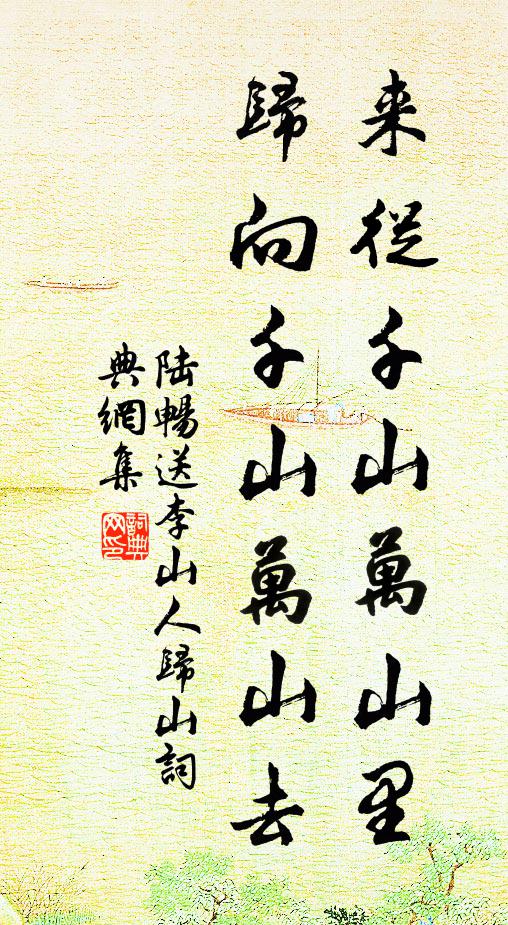 来從千山萬山里
歸向千山萬山去
陸暢送李山人歸山詞
典網集
詞典
网印